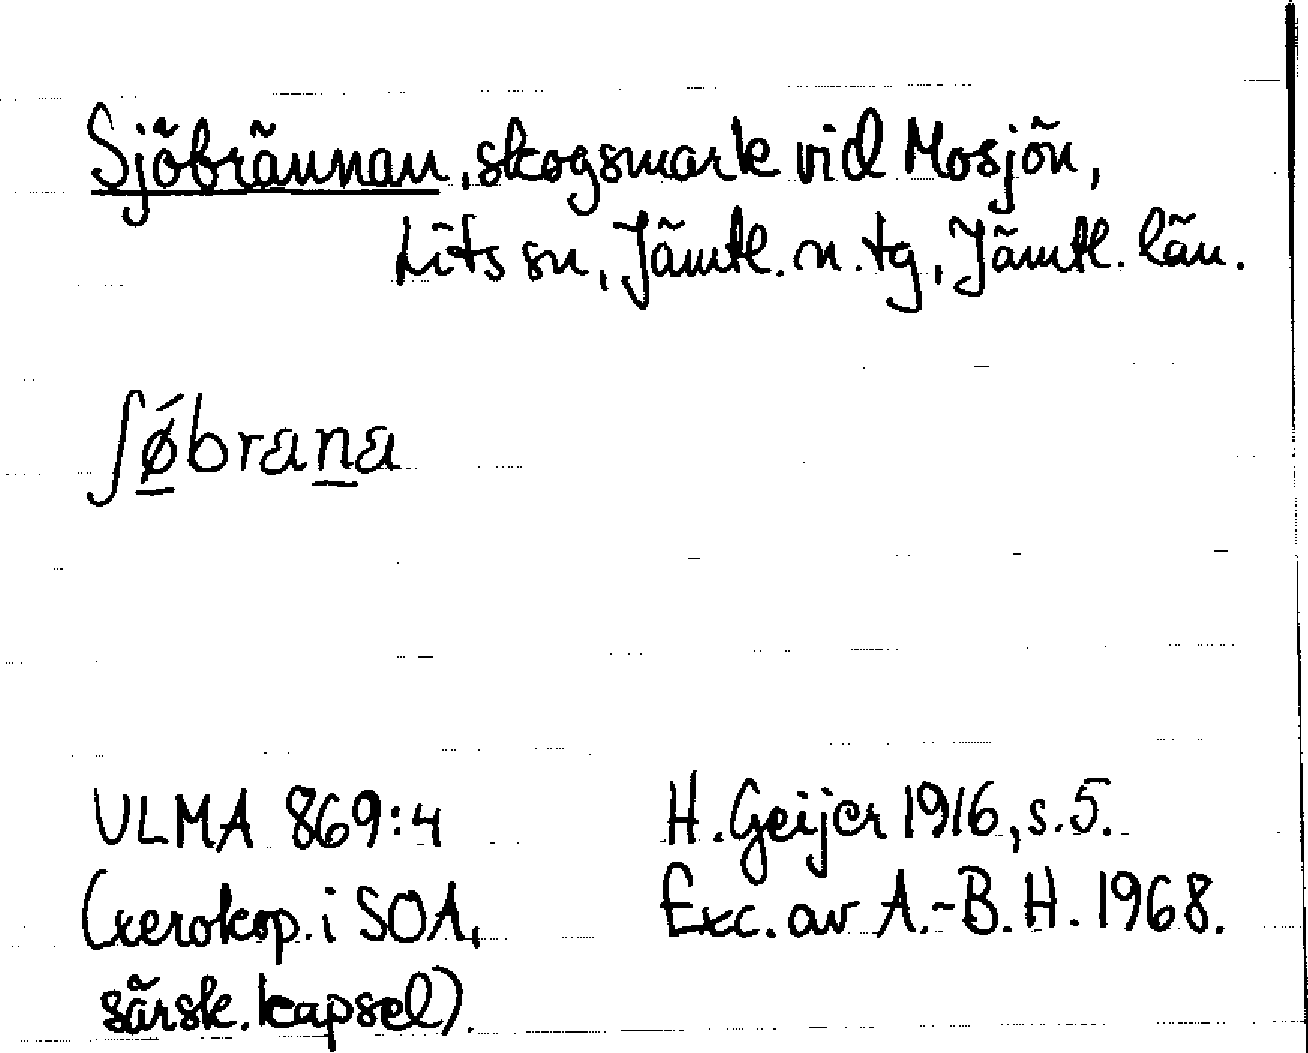 Sjöbrännan, skogsmark vid Mosjön,
Lits sn, Jämtl. n. tg, Jämtl. län.
ʃǿ̱braṉa
ULMA 869:4
(xerokop. i SOA,
särsk. kapsel).
H. Geijer 1916, s. 5.
Exc. av A.-B. H. 1968.